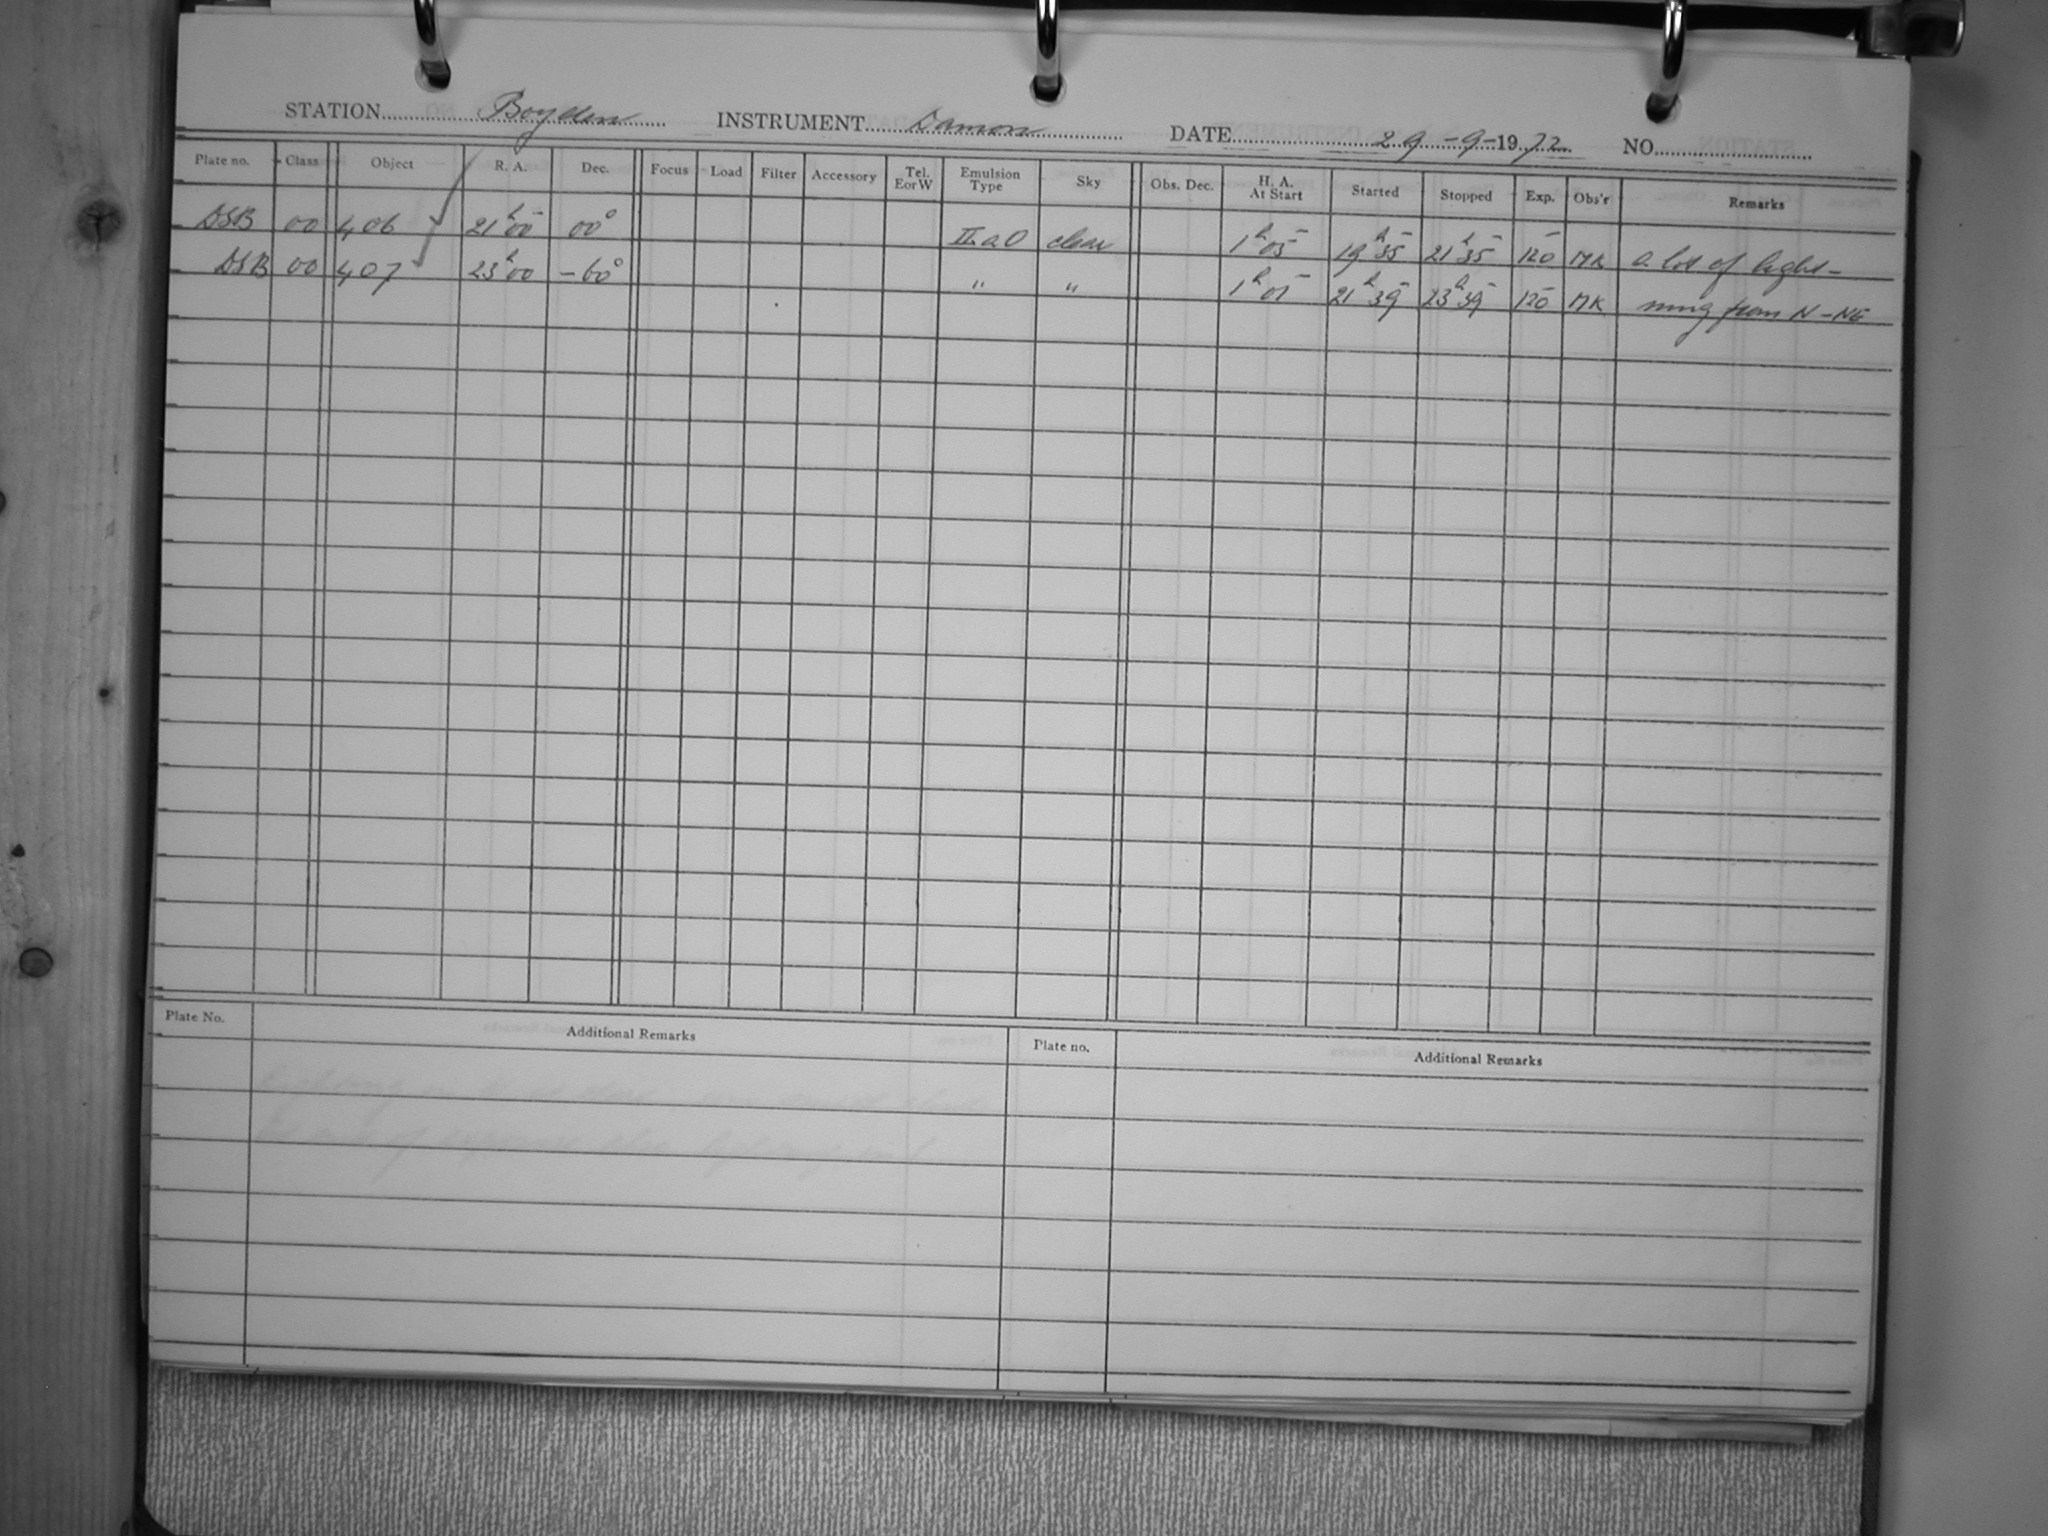 STATION Boyden INSTRUMENT Damon DATE 29-9-1972 NO.
Plate no. Class Object R. A. Dec. Focus Load Filter Accessory Tel. EorW Emulsion Type Sky Obs. Dec. H. A. At Start Started Stopped Exp. Obs'r Remarks
DSB 00 406 21h00 00° IIaO clear 1h05 19h35 21h35 120 MK a lot of light-
DSB 00 407 23h00 -60° " " 1h07 21h39 23h39 120 MK ning from N-NE
Plate No. Additional Remarks Plate no. Additional Remarks